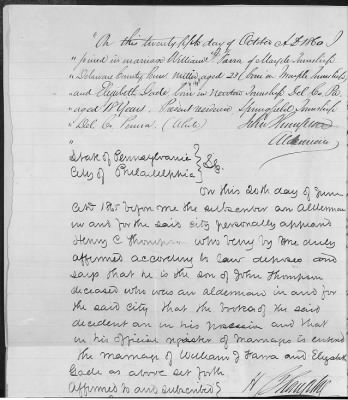 "On this twenty fifth day of October A.D. 1860 I
joined in marriage William T. Farra of Marple Township
Delaware County Penn. Miller, aged 23 (born in Marple Township)
and Elizabeth Gade born in Newton Township Del. Co. Pa.
aged 18 Years. Present residence Springfield Township
Del. Co. Penna. (White) John Thompson
Alderman
State of Pennsylvania } SS.
City of Philadelphia }
On this 20th day of June
A.D. before me the subscriber an Alderman
in and for the said city personally appeared
Henry C. Thompson who being by me duly
affirmed according to law deposes and
says that he is the son of John Thompson
deceased who was an alderman in and for
the said city that the books of the said
decedent are in his possession and that
in his official register of marriages is entered
the marriage of William T Farra and Elizabeth
Gade as above set forth
Affirmed to and subscribed }